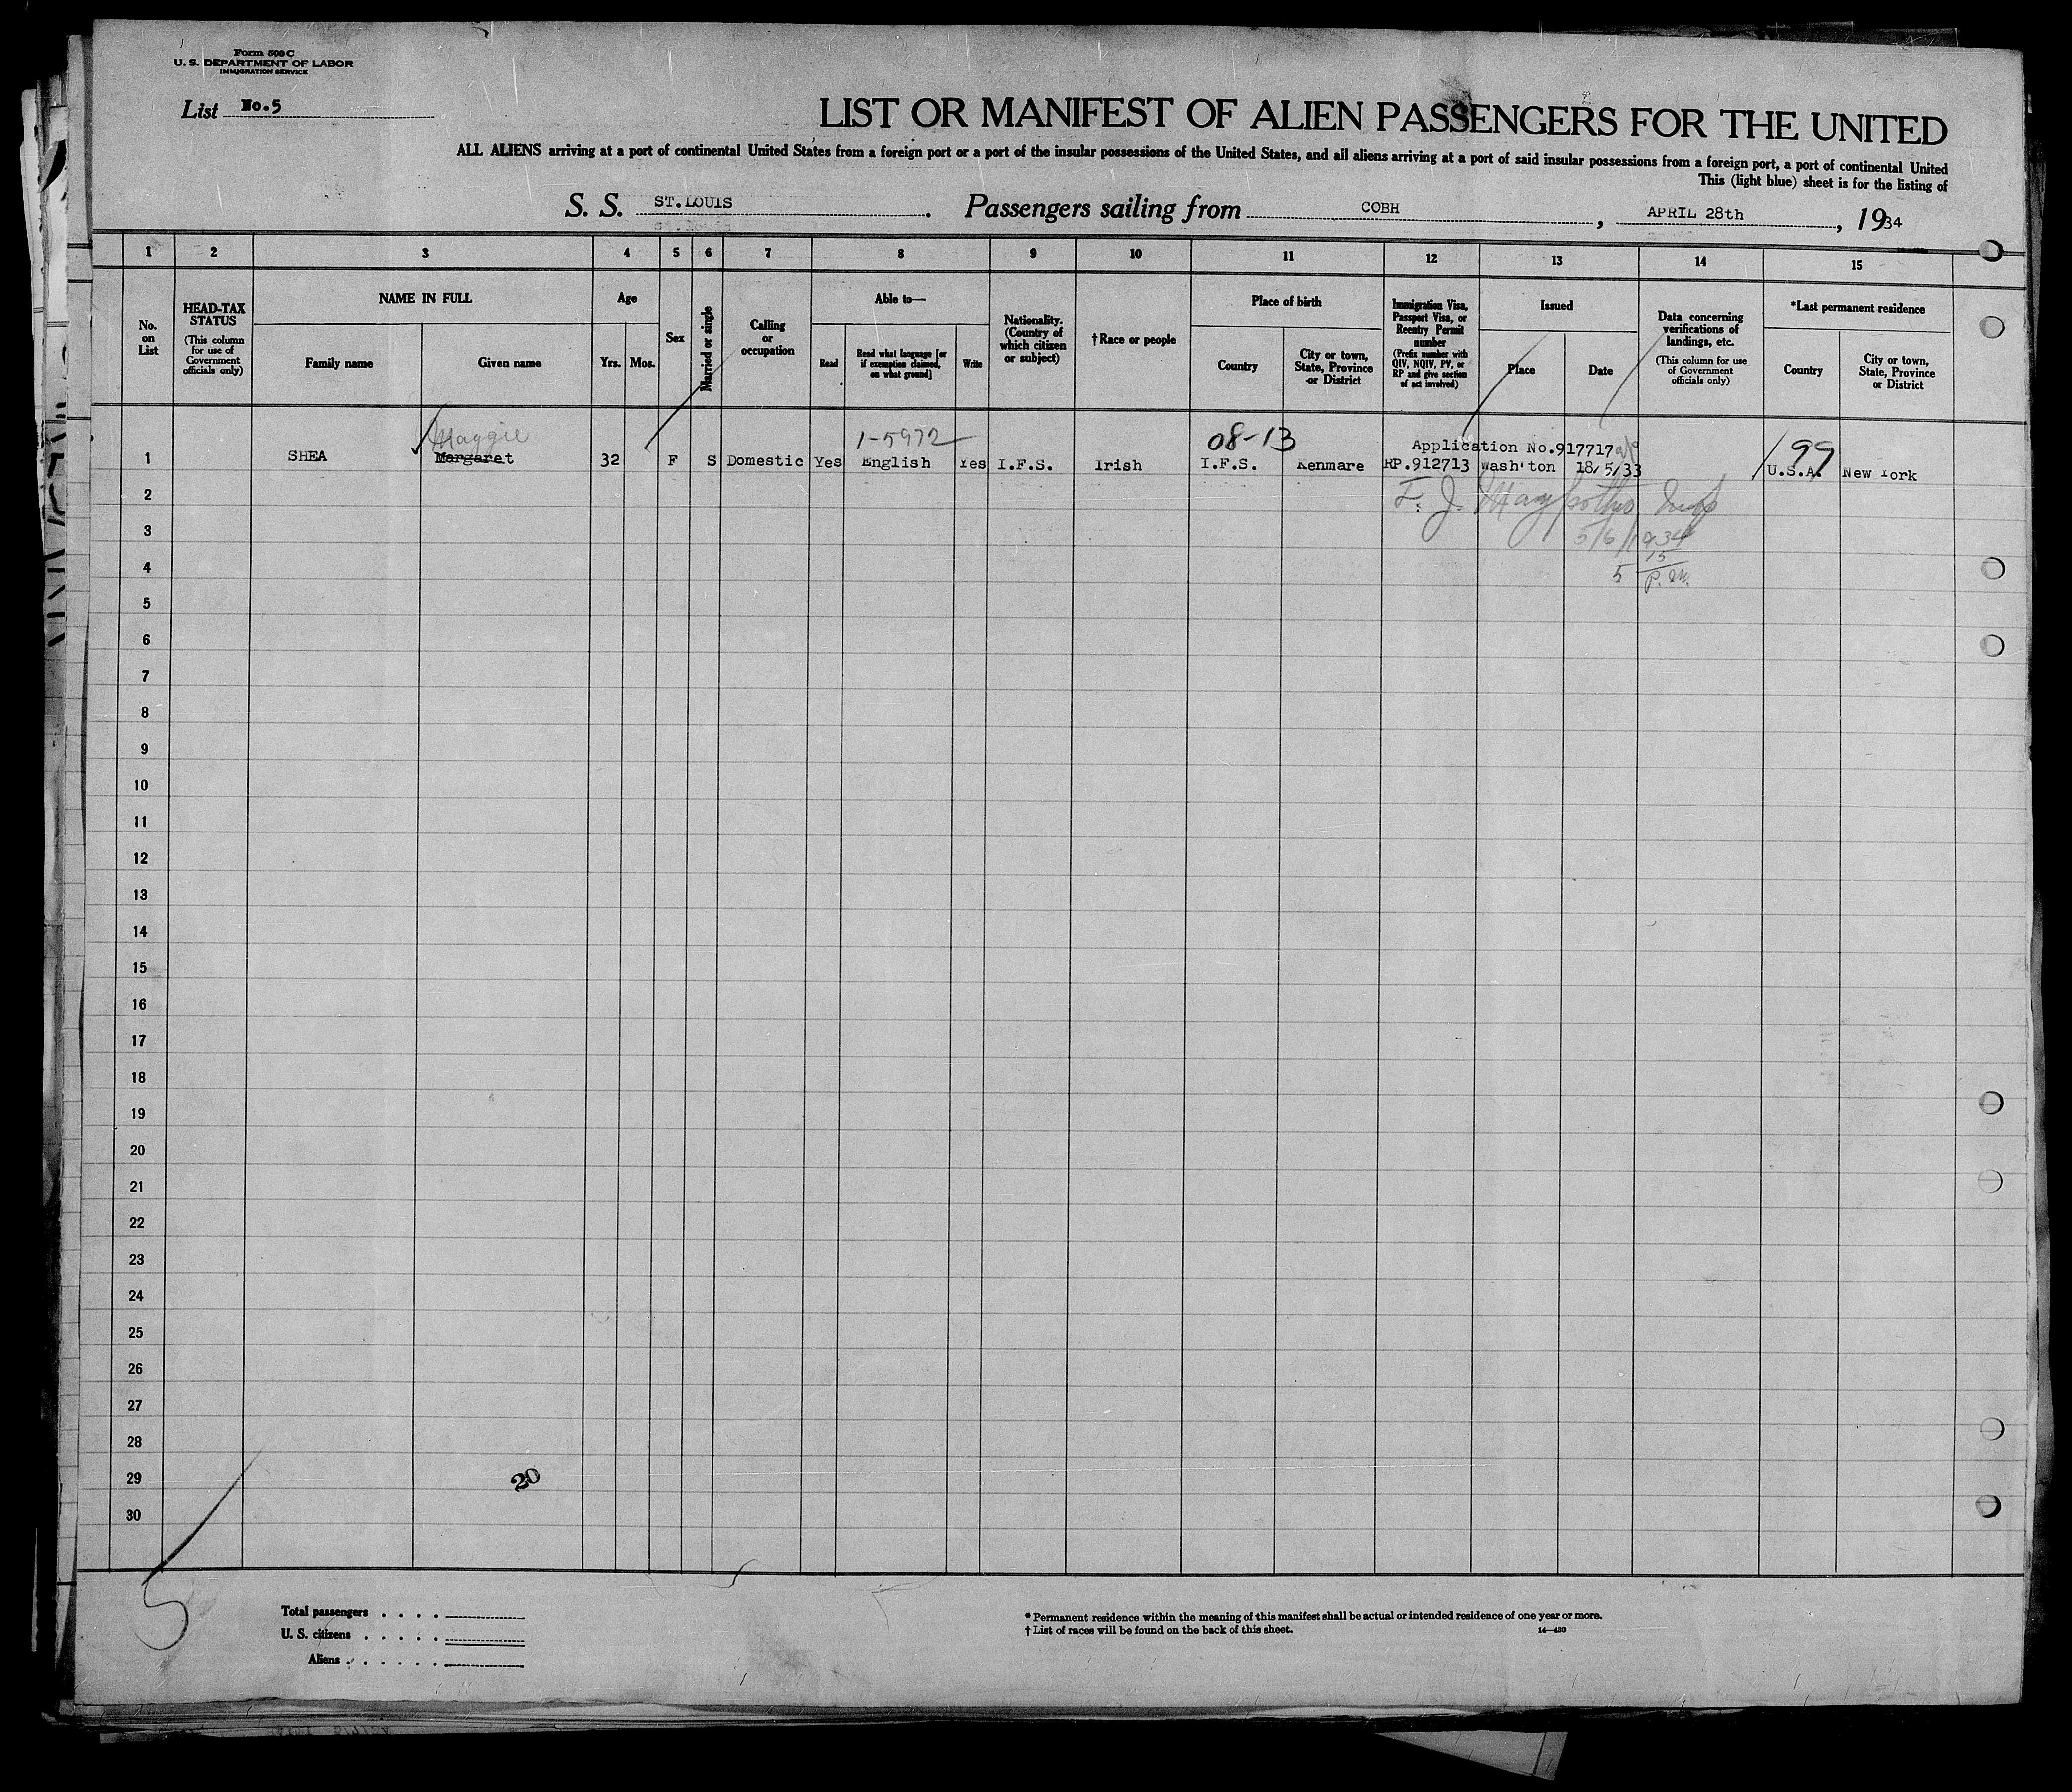 Form 500 C
U. S. DEPARTMENT OF LABOR
IMMIGRATION SERVICE
List No.5
LIST OR MANIFEST OF ALIEN PASSENGERS FOR THE UNITED
ALL ALIENS arriving at a port of continental United States from a foreign port or a port of the insular possessions of the United States, and all aliens arriving at a port of said insular possessions from a foreign port, a port of continental United
This (light blue) sheet is for the listing of
S. S. ST.LOUIS. Passengers sailing from COBH, APRIL 28th, 1934
1 2 3 4 5 6 7 8 9 10 11 12 13 14 15
No. on List
HEAD-TAX STATUS
(This column for use of Government officials only)
NAME IN FULL
Family name
Given name
Age
Yrs. Mos.
Sex
Married or single
Calling or occupation
Able to—
Read
Read what language [or if exemption claimed, on what ground]
Write
Nationality. (Country of which citizen or subject)
†Race or people
Place of birth
Country
City or town, State, Province or District
Immigration Visa, Passport Visa, or Reentry Permit number
(Prefix number with QIV, NQIV, PV, or RP and give section of act involved)
Issued
Place
Date
Data concerning verifications of landings, etc.
(This column for use of Government officials only)
*Last permanent residence
Country
City or town, State, Province or District
Maggie 1-5972 08-13 Application No.917717 99
1 SHEA Margaret 32 F S Domestic Yes English Yes I.F.S. Irish I.F.S. Kenmare RP.912713 Wash'ton 18/5/33 U.S.A. New York
2 F. J.
3 5/6/1934
15
4 5 P.M.
5
6
7
8
9
10
11
12
13
14
15
16
17
18
19
20
21
22
23
24
25
26
27
28
29 20
30
5
Total passengers . . . .
U. S. citizens . . . . .
Aliens . . . . . .
* Permanent residence within the meaning of this manifest shall be actual or intended residence of one year or more.
† List of races will be found on the back of this sheet.
14—420